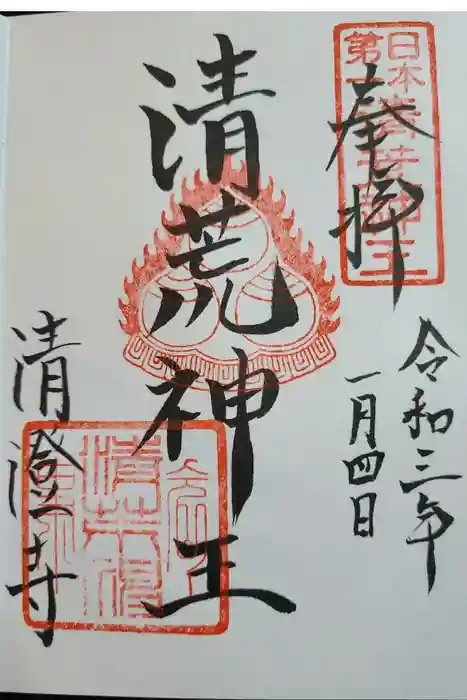 日本
第一
清荒神王
奉拝
令和三年
一月四日
清荒神王
清澄寺